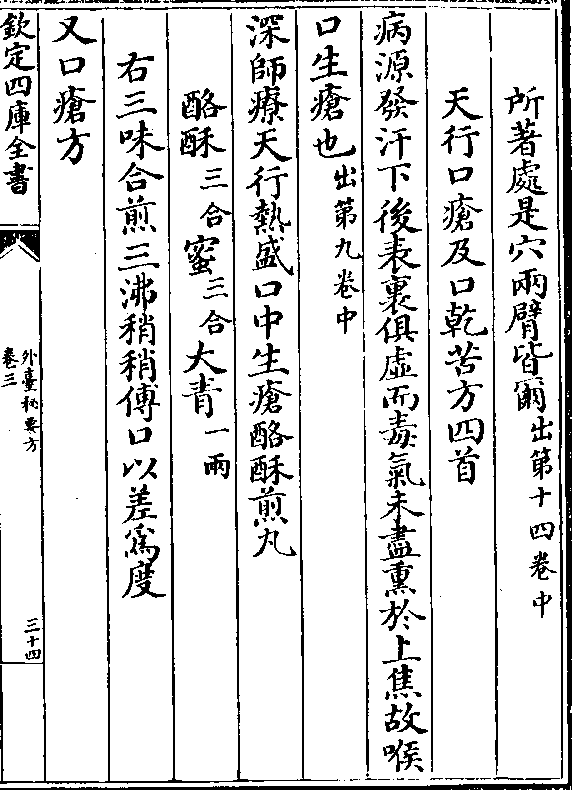 所著處是穴兩臂皆爾出第十四卷中
天行口瘡及口乾苦方四首
病源發汗下後表裏俱虛而毒氣未盡熏於上焦故喉
口生瘡也出第九卷中
深師療天行熱盛口中生瘡酪酥煎丸
酪酥三合蜜三合大青一兩
右三味合煎三沸稍稍傅口以差為度
又口瘡方
欽定四庫全書
外臺秘要方
卷三
三十四